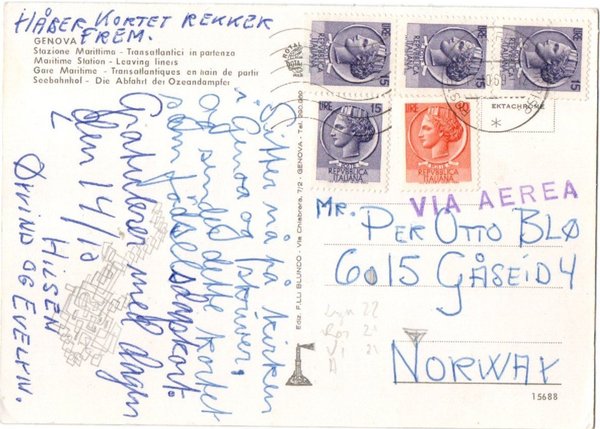 HÅBER KORTET REKKER
FREM.
GENOVA
Stazione Marittima - Transatlantici in partenza
Maritime Station - Leaving liners
Gare Maritime - Transatlantiques en train de partir
Seebahnhof - Die Abfahrt der Ozeandampfer
Sitter nå på kirken
i Genoa og skriver,
og sender dette kortet
som fødselsdagskort.
Gratulerer med dagen
den 14/10
HILSEN
ØIVIND OG EVELYN.
Ediz. F.LLI BLUNCO - Via Chiabrera, 7/2 - GENOVA - Tel.
LIRE 15
REPVBBLICA
ITALIANA
LIRE 15
REPVBBLICA
ITALIANA
LIRE 15
REPVBBLICA
ITALIANA
LIRE 15
REPVBBLICA
ITALIANA
LIRE
REPVBBLICA
ITALIANA
EKTACHROME
*
VIA AEREA
MR. PER OTTO BLØ
6015 GÅSEID 4
NORWAY
15688